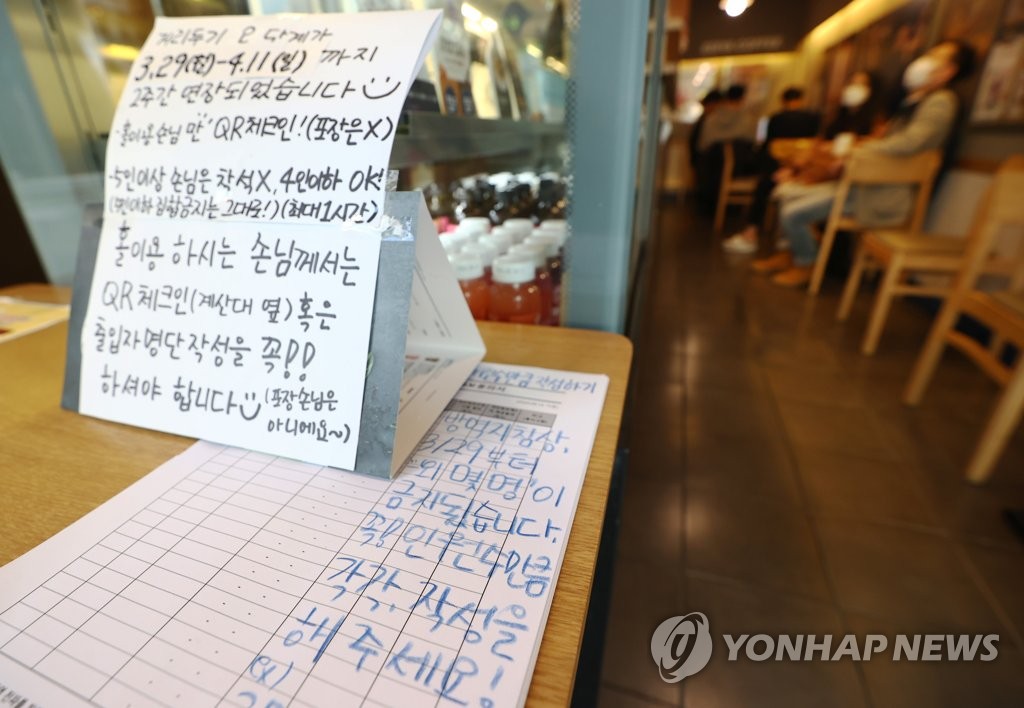 거리두기 2단계가
3.29(월) - 4.11(일) 까지
2주간 연장되었습니다
"홀이용손님 만" QR체크인! (포장은X)
-5인이상 손님은 착석X, 4인이하 OK!
(최대1시간)
홀이용 하시는 손님께서는
QR체크인(계산대 옆)혹은
출입자명단작성을 꼭!!
하셔야 합니다 (포장손님은
아니에요~)
작성하기
방역지침상,
3/29부터
"외 몇명"이
금지됩니다.
꼭! 인원수만큼
각각, 작성을
해주세요!
YONHAP NEWS